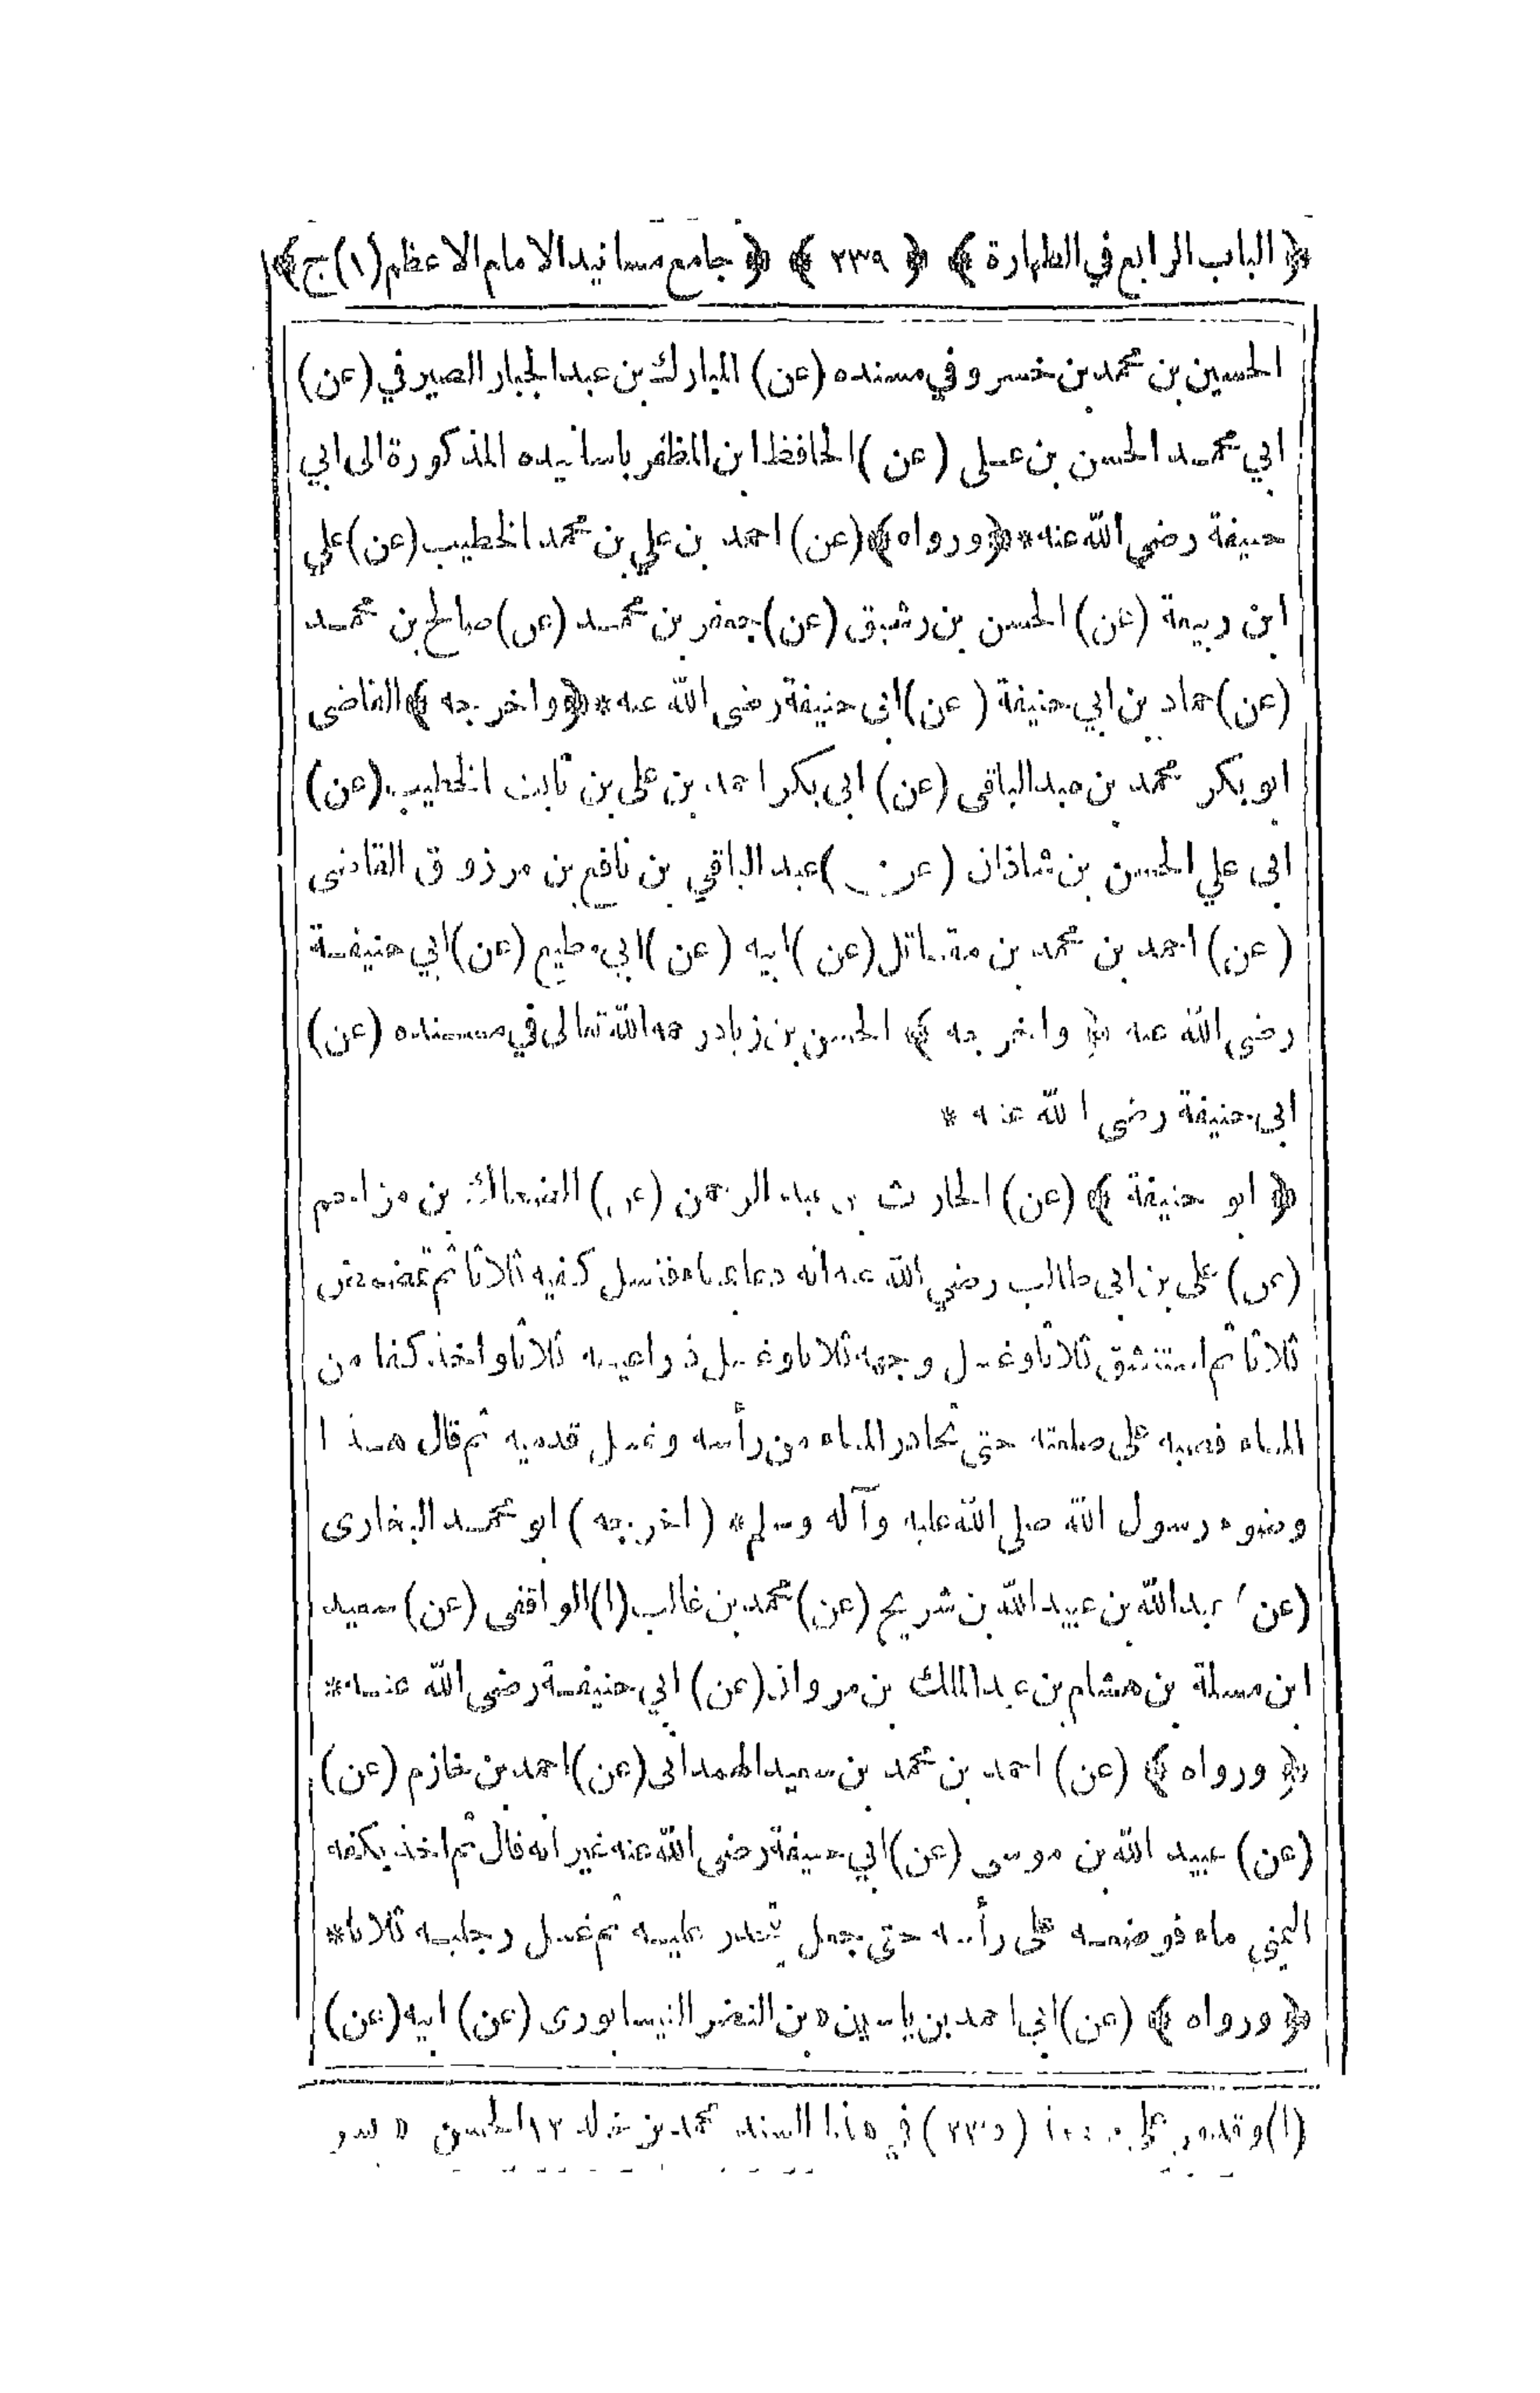 ﴿ الباب الرابع في الطهارة ﴾ ﴿ ٢٣٩ ﴾ ﴿ جامع مسانيد الامام الاعظم (١) ج ﴾
الحسين بن محمد بن خسرو في مسنده (عن) المبارك بن عبد الجبار الصيرفي (عن)
ابي محمد الحسن بن علي (عن) الحافظ ابن المظفر باسانيده المذكورة الى ابي
حنيفة رضي الله عنه * ﴿ ورواه ﴾ (عن) احمد بن علي بن محمد الخطيب (عن) علي
ابن ربيعة (عن) الحسن بن رشيق (عن) جعفر بن محمد (عن) صالح بن محمد
(عن) حماد بن ابي حنيفة (عن) ابي حنيفة رضي الله عنه * ﴿ واخرجه ﴾ القاضي
ابو بكر محمد بن عبد الباقي (عن) ابي بكر احمد بن علي بن ثابت الخطيب (عن)
ابي علي الحسن بن شاذان (عن) عبد الباقي بن نافع بن مرزوق القاضي
(عن) احمد بن محمد بن مقاتل (عن) ابيه (عن) ابي مطيع (عن) ابي حنيفة
رضي الله عنه ﴿ واخرجه ﴾ الحسن بن زياد رحمه الله تعالى في مسنده (عن)
ابي حنيفة رضي الله عنه *
﴿ ابو حنيفة ﴾ (عن) الحارث بن عبد الرحمن (عن) الضحاك بن مزاحم
(عن) علي بن ابي طالب رضي الله عنه انه دعا بماء فغسل كفيه ثلاثا ثم تمضمض
ثلاثا ثم استنشق ثلاثا وغسل وجهه ثلاثا وغسل ذراعيه ثلاثا واخذ كفا من
الماء فصبه على صلعته حتى تحادر الماء من رأسه وغسل قدميه ثم قال هذا
وضوء رسول الله صلى الله عليه وآله وسلم * (اخرجه) ابو محمد البخارى
(عن) عبد الله بن عبيد الله بن شريح (عن) محمد بن غالب (١) الواقفي (عن) سعيد
ابن مسلمة بن هشام بن عبد الملك بن مروان (عن) ابي حنيفة رضي الله عنه *
﴿ ورواه ﴾ (عن) احمد بن محمد بن سعيد الهمداني (عن) احمد بن خازم (عن)
(عن) عبيد الله بن موسى (عن) ابي حنيفة رضي الله عنه غير انه قال ثم اخذ بكفه
اليمنى ماء فوضعه على رأسه حتى جعل يتحدر عليه ثم غسل رجليه ثلاثا *
﴿ ورواه ﴾ (عن) ابي احمد بن ياسين بن النضر النيسابورى (عن) ابيه (عن)
(١) وقد مر على في هذا السند محمد بن خالد ١٢ الحسن